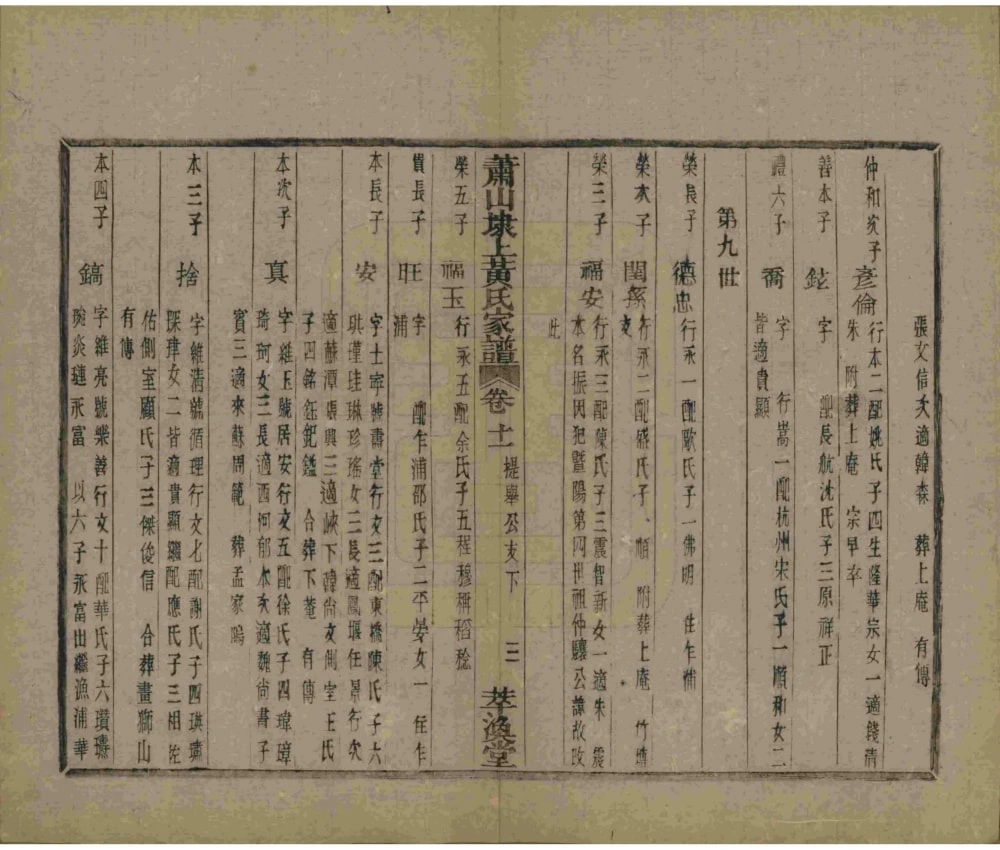 張文信次適韓森　葬上庵　有傳
仲和次子　彥倫　行本二配姚氏子四生隆華宗女一適錢清
朱　附葬上庵　宗早卒
善本子　鈋　字　配長航沈氏子三原祥正
禮六子　喬　字　行嵩一配杭州宋氏子一順和女二
皆適貴顯
第九世
榮長子　德忠　行永一配歐氏子一佛明　住乍浦
榮次子　閏孫　行永二配盛氏子　順　附葬上庵　竹
榮三子　福安　行永三配陳氏子三震智新女一適朱　震
本名振因犯暨陽第四世祖仲驤公諱故改
此
蕭山埭上黃氏家譜　卷十一　提舉公支下　三　萃渙堂
榮五子　福玉　行永五配余氏子五程穆稱稻稔
貴長子　旺　字　配乍浦邵氏子二平晏女一　住乍
浦
本長子　安　字士寧號壽堂行文三配東橋陳氏子六
琪瑾珪琳珍瑤女三長適鳳堰任景行次
適蘇潭張興三適峽下韓尚文側室王氏
子四銘鈺鈀鎰　合葬下菴　有傳
本次子　真　字維玉號居安行文五配徐氏子四瑋璋
琦珂女三長適西河郁本次適魏尚書子
賓三適來蘇周範　葬孟家鳴
本三子　捨　字維清號循理行文七配謝氏子四珙璛
琛珒女二皆適貴顯繼配應氏子三相佐
佑側室顧氏子三傑俊信　合葬畫獅山
有傳
本四子　鎬　字維亮號樂善行文十配華氏子六瓚璹
琬炎璉永富　以六子永富出繼漁浦華